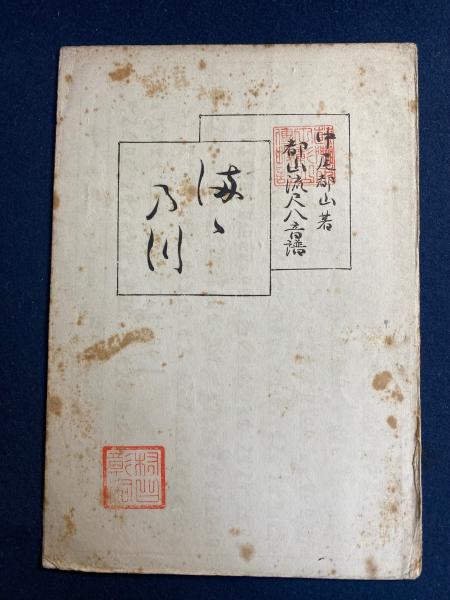 中尾都山著
都山流尺八音譜
満ゝ
乃川